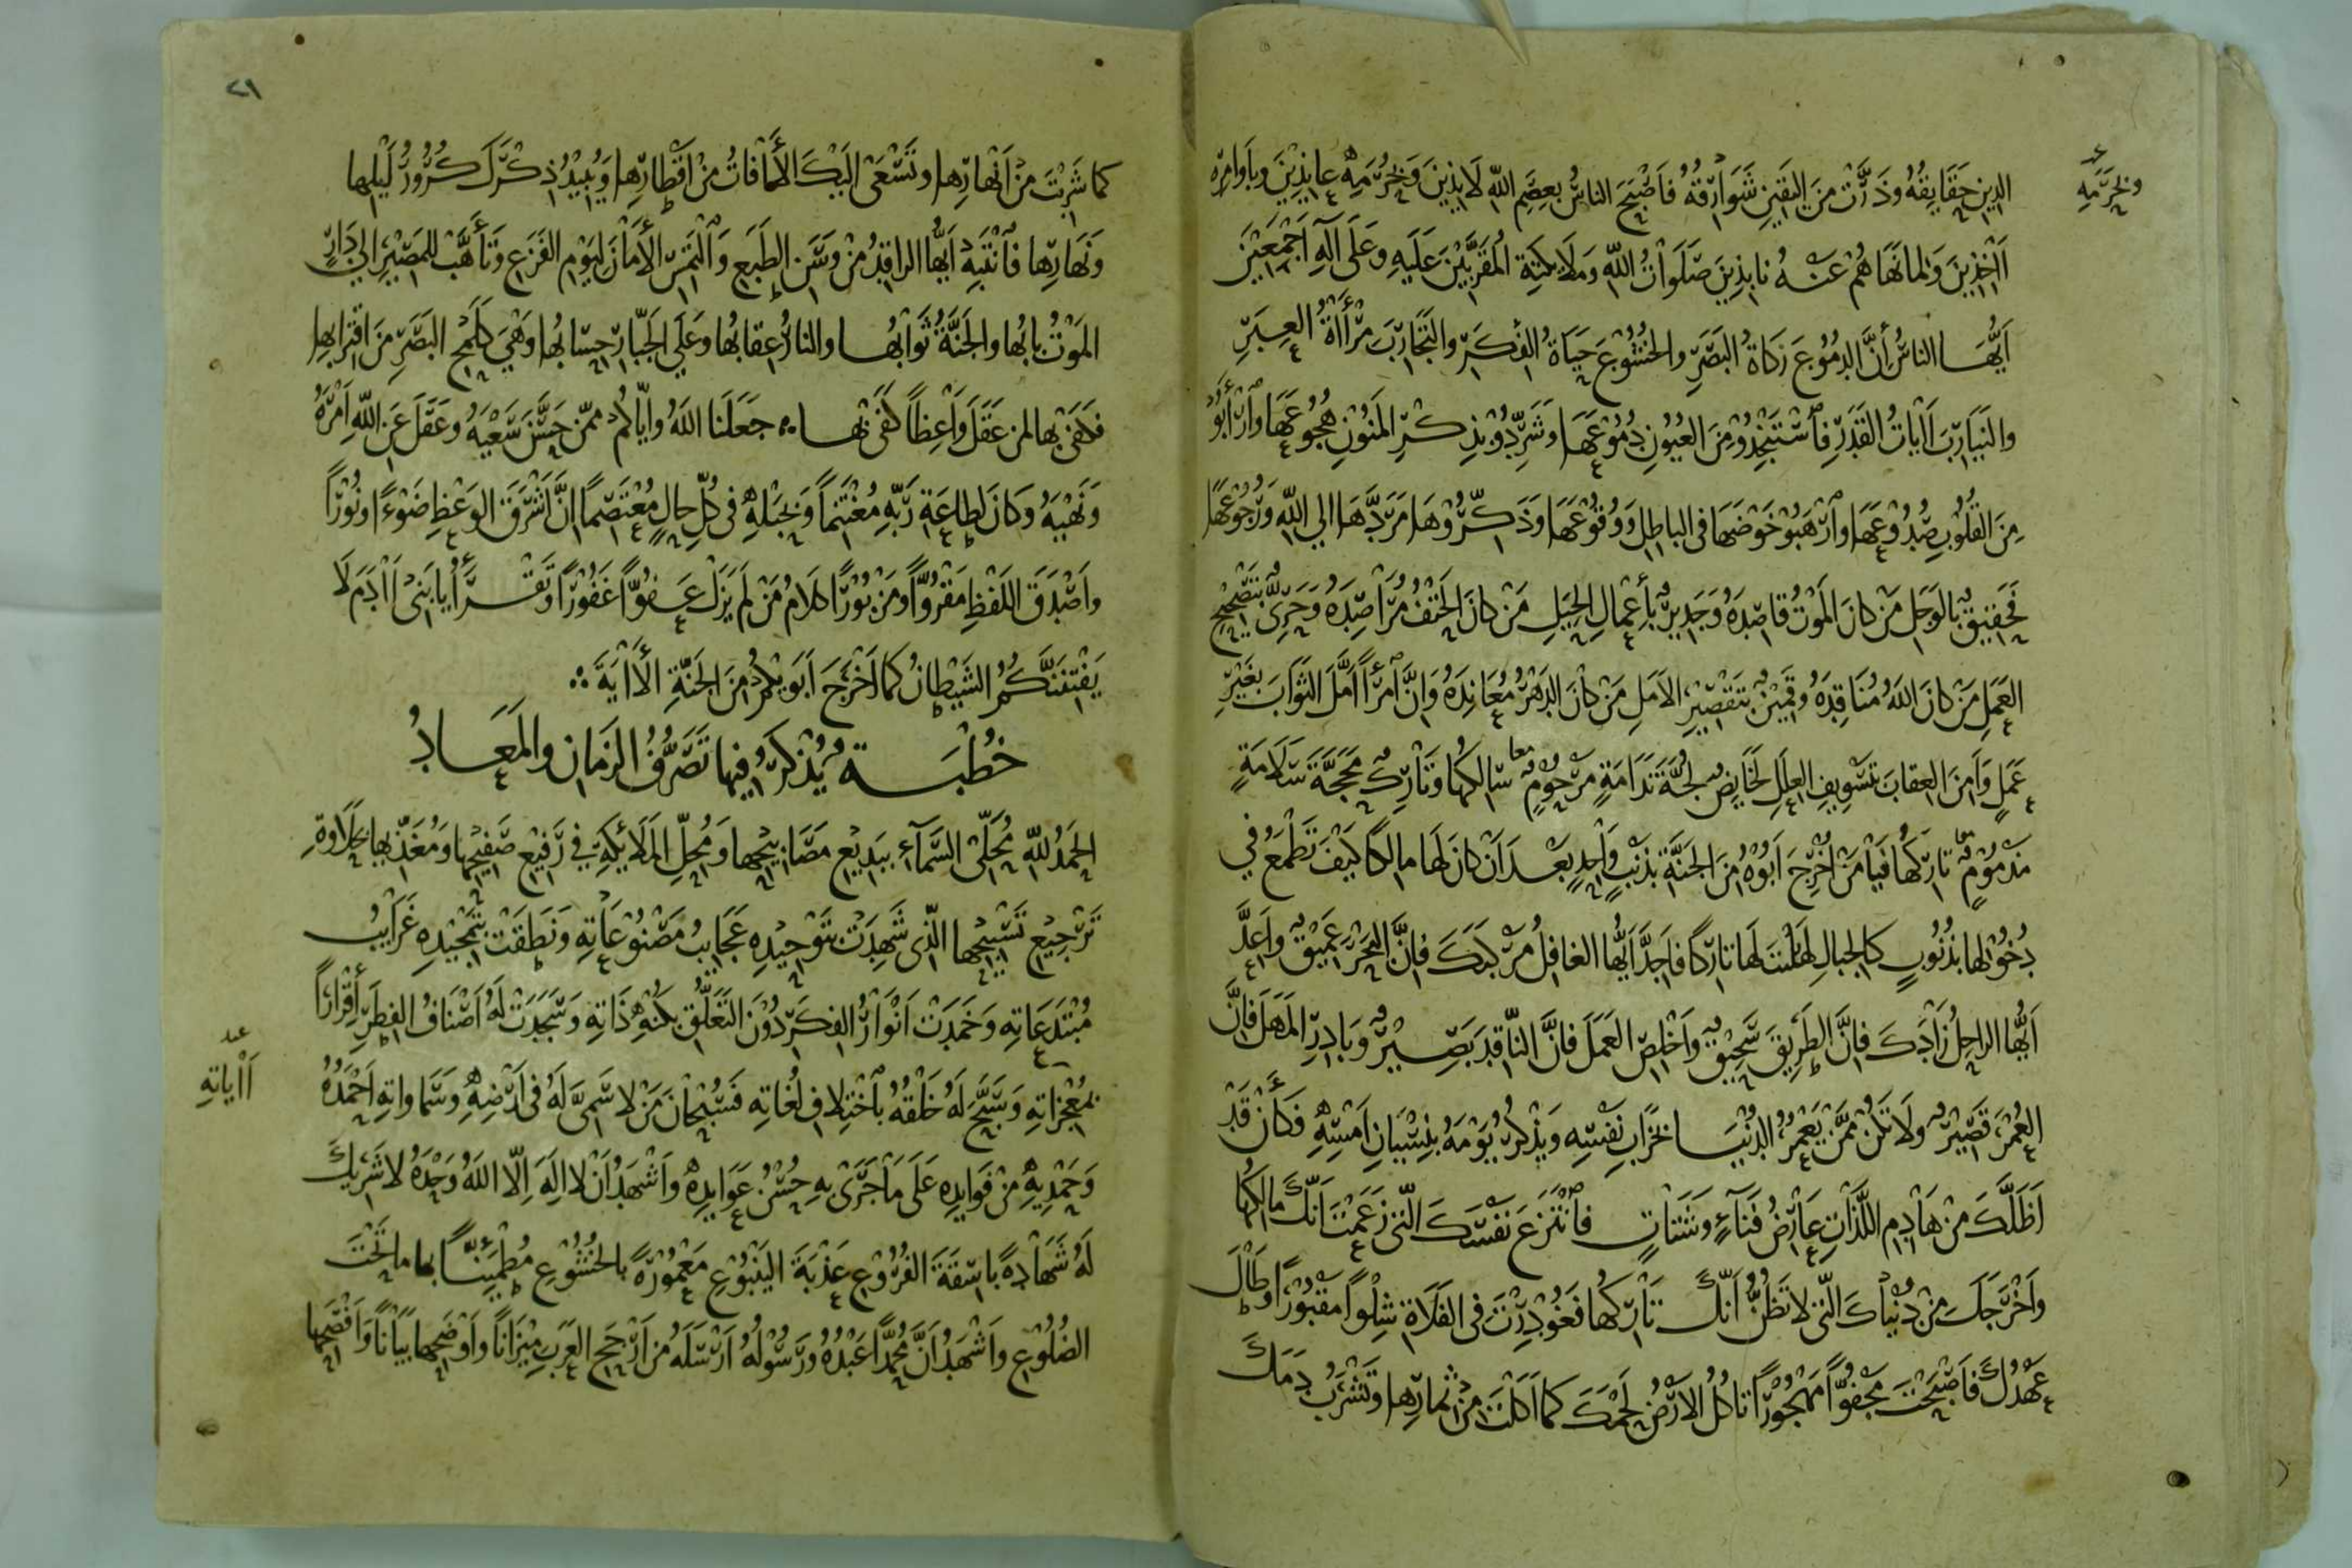 الدين حَقَايِقهُ وذَرَّتْ مِنَ اليَقِينِ شَوَارِقُهُ فَاَصْبَحَ الناسُ بِعِصَمِ اللّهِ لَايِذِينَ وَبِحَرَمِهِ عَايِذِيْنَ وبأَوامِرِه
وبحُرَمِهِ
اٰخِذِينَ وَلِمَا نَهَاهُم عَنْهُ نابِذِينَ صَلَوَاتُ اللّهِ وَمَلَايِكَتِهِ المُقَرَّبِيْنَ عَلَيهِ وعَلَى آلِهِ اَجْمَعِيْنَ
اَيُّهَا الناسُ إنَّ الدمُوْعَ زكاةُ البَصَرِ والخُشُوْعَ حَيَاةُ الفِكَرِ والتَجَارِبَ مِرْأَةُ العِبَرِ
والنَيَارِبَ اٰيَاتُ القَدَرِ فٱسْتَنْجِدُوْ مِنَ العُيُونِ دُمُوْعَهَا وَشَرِّدُوْ بِذِكْرِ المَنُوْنِ هُجُوعَهَا وارْأَبُوْ
مِنَ القُلُوْبِ صُدُوْعَهَا وٱرْهَبُوْ خَوْضَهَا في الباطِلِ وَوُقُوْعَهَا وَذَكِّرُوْهَا مَرَدَّهَا الي اللّهِ وَرُجُوْعَهَا
فَحَقِيقٌ بِالوَجَلِ مَنْ كانَ المَوْتُ قَاصِدَهُ وَجَدِيرٌ بأعْمالِ الحِيَلِ مَنْ كانَ الحَتْفُ مُرَاصِدَهُ وَحَرِيٌّ بتَصْحِيْحِ
العَمَلِ مَنْ كانَ اللّهُ مُنَاقِدَهُ وقَمِيْنٌ بتَقْصِيْرِ الاَمَلِ مَنْ كَانَ الدَهْرُ مُعَانِدَهُ وَإنَّ ٱمْرَأً أمَّلَ الثَوَابَ بغَيْرِ
عَمَلٍ وَاَمِنَ العِقابَ بتَسْوِيفِ العِلَلِ لَخَايِضٌ لُجَّةَ نَدَامَةٍ مَرْحُوْمٍ معا سَالِكُهَا وتَارِكٌ مَحَجَّةَ سَلَامَةٍ
مَذمُوْمٍ معا تارِكُهَا فَيَا مَنْ اُخْرِجَ اَبُوْهُ مِنَ الجَنَّةِ بِذَنْبٍ وَاحِدٍ بَعْدَ اَنْ كانَ لَهَا مالِكاً كَيْفَ تَطْمَعُ في
دُخُوْلِها بِذُنُوبٍ كَالجِبالِ لَسْتَ لَهَا تارِكاً فاَجِدَّ اَيُّها الغافِلُ مَرْكَبَكَ فَإنَّ البَحْرَ عَمِيْقٌ واَعِدَّ
اَيُّها الراحِلُ زَادَكَ فَإنَّ الطَرِيقَ سَحِيْقٌ وَاَخْلِصِ العَمَلَ فإنَّ النّاقِدَ بَصِيْرٌ وَبادِرِ المَهَلَ فَإنَّ
العُمْرَ قَصِيْرٌ ولَا تَكُنْ مِمَّنْ يَعْمُرُ الدُنْيَا بِخَرَابِ نَفْسِهِ وَيَذْكُرُ يَوْمَهُ بِنِسْيَانِ اَمْسِهِ فَكَأَنْ قَدْ
اَظَلَّكَ مِنْ هَادِمِ اللَّذَّاتِ عَارِضُ فَنَاءٍ وشَتَاتٍ فٱنْتَزَعَ نَفْسَكَ الّتي زَعَمْتَ اَنَّكَ مالِكُهَا
واَخْرَجَكَ مِنْ دُنْيَاكَ الّتي لا تَظُنُّ اَنّكَ تَارِكُهَا فَغُوْدِرْتَ في الفَلَاةِ شِلْواً مَقْبُوْرًا وَطَالَ
عَهْدُكَ فأَصْبَحْتَ مَجْفُوًّا مَهْجُوْرًا تاكُلُ الاَرْضُ لَحْمَكَ كَما اَكَلْتَ مِنْ ثِمَارِها وتَشْرَبُ دَمَكَ
٢١
كما شَرِبْتَ مِنْ اَنْهارِها وتَسْعَى اليَكَ الأٰفاتُ مِنْ اَقْطارِها ويُبِيْدُ ذِكْرَكَ كُرُوْرُ لَيْلِها
وَنَهَارِها فٱنْتَبِهْ اَيُّها الراقِدُ مِنْ وَسَنِ الطَبَعِ وَٱلْتَمِسِ الأَمَانَ لِيَوْمِ الفَزَعِ وَتَأَهَّبْ للمَصِيْرِ إلي دَارٍ
المَوْتُ بابُها والجَنَّةُ ثَوَابُها والنارُ عِقابُها وعَلَي الجَبّارِ حِسَابُها وَهْيَ كَلَمْحِ البَصَرِ مِنَ اقْتِرَابِها
فكَفَى بها لمن عَقَلَ وَاعِظاً كَفَى بها ؞ جَعَلَنا اللّهُ وايّاكُم مِمَّن حَسُنَ سَعْيُهُ وعَقَلَ عَنِ اللّهِ اَمْرَهُ
وَنَهْيَهُ وكانَ لطاعَةِ رَبِّهِ مُغْتَنِماً وَبِحَبْلِهِ في كُلِّ حالٍ مُعْتَصِمًا إنَّ اَشْرَقَ الوَعْظِ ضَوْءًا ونُوْرًا
واَصْدَقَ اللَفْظِ مَقْرُوًّا ومَزْبُوْرًا كَلامُ مَنْ لم يَزَلْ عَفُوًّا غَفُوْرًا وَتَقْرأُ يا بَنِىْ اٰدَمَ لَا
يَفْتِنَنَّكُمُ الشَيْطانُ كما اَخْرَجَ اَبَوَيْكُمْ مِنَ الجَنّةِ الأٰيَةَ ؞
خُطْبَةٌ يُذْكَرُ فيها تَصَرُّفُ الزَمَانِ والمَعَادُ
الحَمْدُ للّهِ مُحَلِّى السَّمَآءِ بِبَدِيْعِ مَصَابِيْحِها وَمُحِلِّ المَلَائِكَةِ في رَفِيْعِ صَفِيْحِها وَمُغَذِّيها بحَلَاوةِ
تَرْجِيْعِ تَسْبِيْحِها الّذي شَهِدَتْ بتَوْحِيْدِهِ عَجَايِبُ مَصْنُوْعَاتِهِ وَنَطَقَتْ بتَمْجِيْدِهِ غَرَايِبُ
مُبْتَدَعَاتِهِ وَخَمَدَتْ اَنْوَارُ الفِكَرِ دُوْنَ التَعَلُّقِ بكُنْهِ ذَاتِهِ وَسَجَدَتْ لَهُ اَصْنَافُ الفِطَرِ إقْرَارًا
بمُعْجِزَاتِهِ وَسَبَّحَ لَهُ خَلْقُهُ بٱخْتِلَافِ لُغَاتِهِ فَسُبْحَانَ مَنْ لا سَمِىَّ لَهُ في اَرْضِهِ وَسَمَاوَاتِهِ اَحْمَدُهُ
اٰيَاتِهِ
وَحَمْدِيْهِ مِنْ فَوَايِدِهِ عَلَى مَا جَرَى بِهِ حُسْنُ عَوَايِدِهِ وَاَشْهَدُ اَنْ لا الَهَ اِلّا اللّهُ وَحْدَهُ لا شَرِيْكَ
لَهُ شَهَادَةً باسِقَةَ الفُرُوْعِ عَذْبَةَ اليَنْبُوْعِ مَعْمُوْرَةً بالخُشُوْعِ مُطْمَئِنًّا بها ما تَحْتَ
الضُلُوْعِ وَاَشْهَدُ اَنَّ مُحَمَّدًا عَبْدُهُ ورَسُوْلُهُ اَرْسَلَهُ مِنْ اَرْجَحِ العَرَبِ مِيْزَاناً واَوْضَحِها بَيَاناً وَاَفْصَحِها